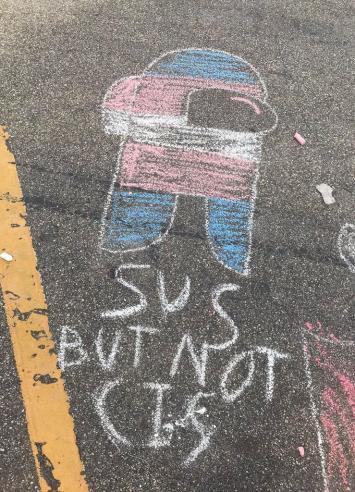 SUS
BUT NOT
CIS